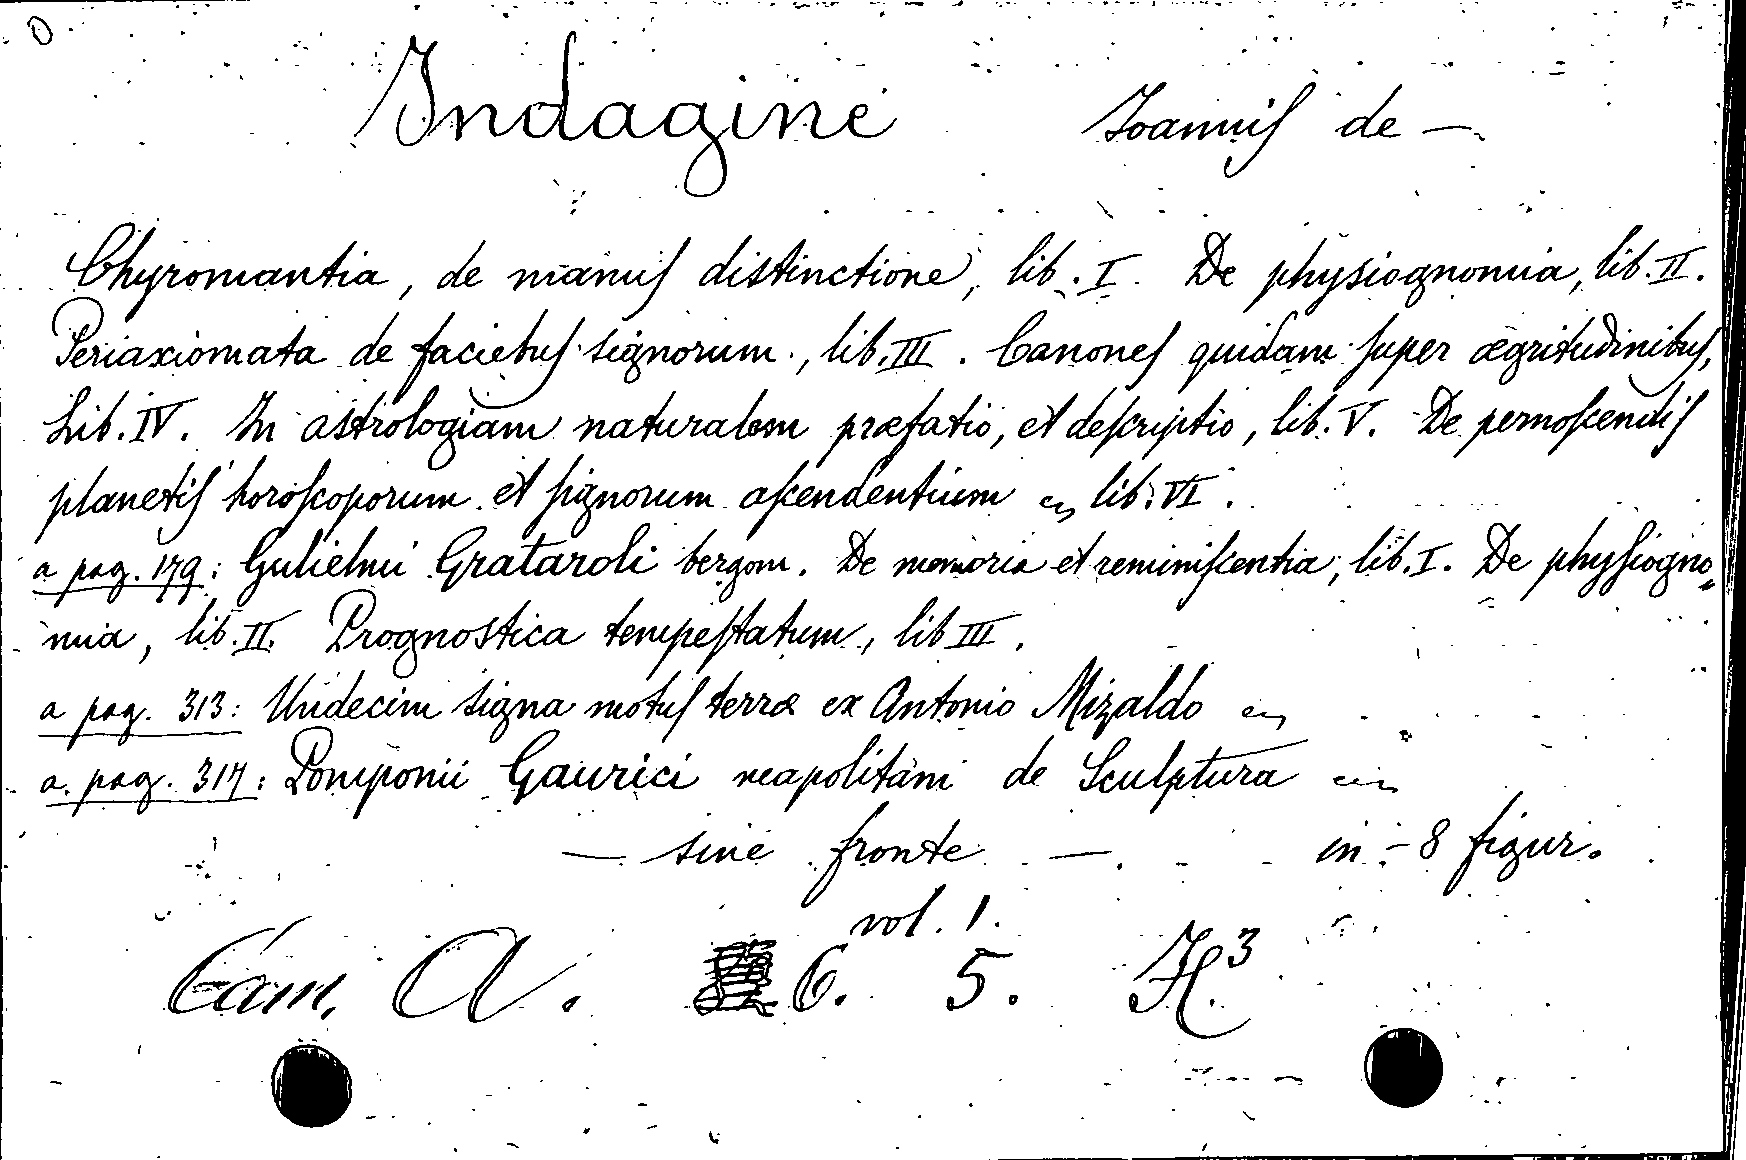 Indagine Joannis de —
Chyromantia, de manus distinctione, lib. I. De physiognomia, lib. II.
Periaxiomata de faciebus signorum, lib. III. Canones quidam super ægritudinibus,
Lib. IV. In astrologiam naturalem præfatio, et descriptio, lib. V. De pernoscendis
planetis horoscoporum et signorum ascendentium lib. VI.
a pag. 179: Gulielmi Grataroli bergom. De memoria et reminiscentia, lib. I. De physiogno=
mia, lib. II. Prognostica tempestatum, lib III.
a pag. 313: Undecim signa motus terræ ex Antonio Mizaldo
a pag. 317: Pomponii Gaurici neapolitani de Sculptura
— sine fronte — in-8 figur.
vol. 1.
Cam. A. 6. 5. H.3